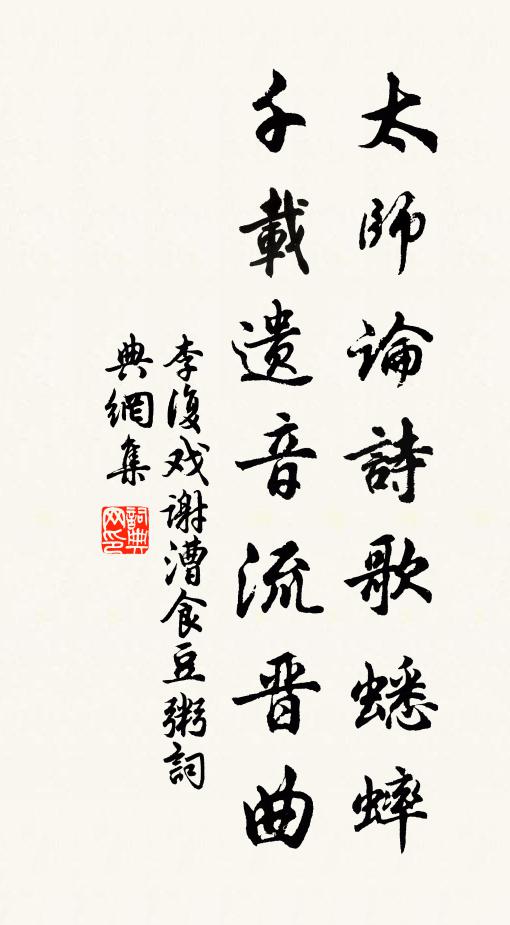 太師論詩歌蟋蟀
千載遺音流晋曲
李復戏謝漕食豆粥詞
典網集
詞典网印